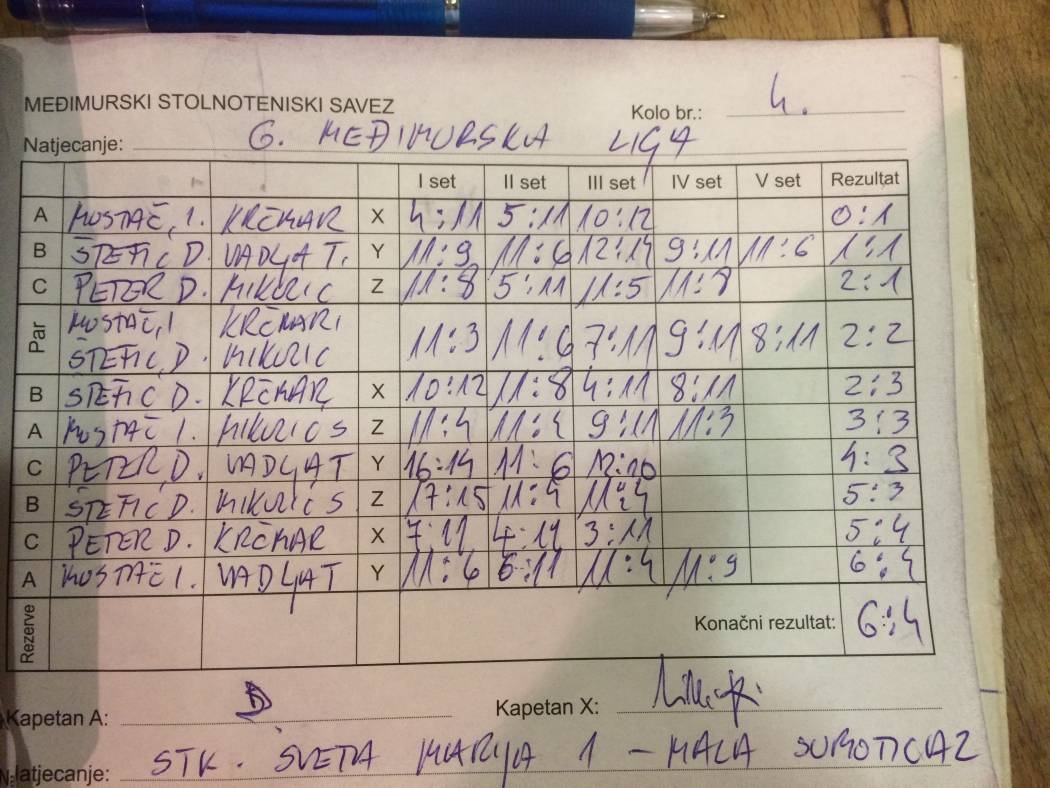 MEĐIMURSKI STOLNOTENISKI SAVEZ
Kolo br.: 4.
Natjecanje: 6. MEĐIMURSKA LIGA
I set II set III set IV set V set Rezultat
A MOSTAČ, I. KRČMAR X 4:11 5:11 10:12 0:1
B ŠTEFIĆ D. VADLJA T. Y 11:9 11:6 12:14 9:11 11:6 1:1
C PETER D. MIKULIĆ Z 11:8 5:11 11:5 11:8 2:1
Par MOSTAČ, I KRČMAR I
ŠTEFIĆ, D. MIKULIĆ 11:3 11:6 7:11 9:11 8:11 2:2
B ŠTEFIĆ D. KRČMAR X 10:12 11:8 4:11 8:11 2:3
A MOSTAČ I. MIKULIĆ S Z 11:4 11:4 9:11 11:3 3:3
C PETER, D. VADLJA T Y 16:14 11:6 12:10 4:3
B ŠTEFIĆ D. MIKULIĆ S Z 17:15 11:4 11:4 5:3
C PETER D. KRČMAR X 7:11 4:11 3:11 5:4
A MOSTAČ I. VADLJA T Y 11:6 6:11 11:4 11:9 6:4
Rezerve Konačni rezultat: 6:4
Kapetan A: Kapetan X:
Natjecanje: STK. SVETA MARIJA 1 - MALA SUBOTICA 2